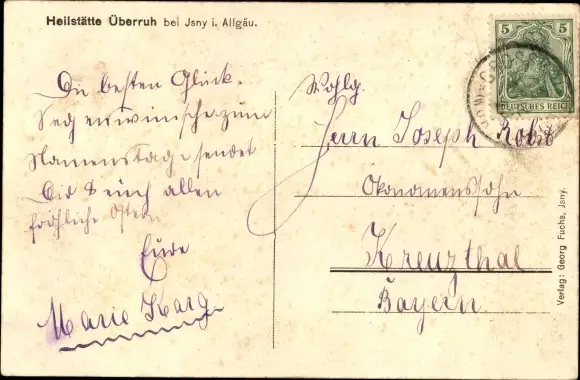 Heilstätte Überruh bei Jsny i. Allgäu.
5 5
DEUTSCHES REICH
Die besten Glück-
Seg enswünsche zum
Namenstage sendet
Dir & euch allen
fröhliche Ostern
Eure
Marie Karg.
Wohlg.
Herrn Joseph
Ökonomenssohn
Kreuzthal
Bayern.
Verlag: Georg Fuchs, Jsny.